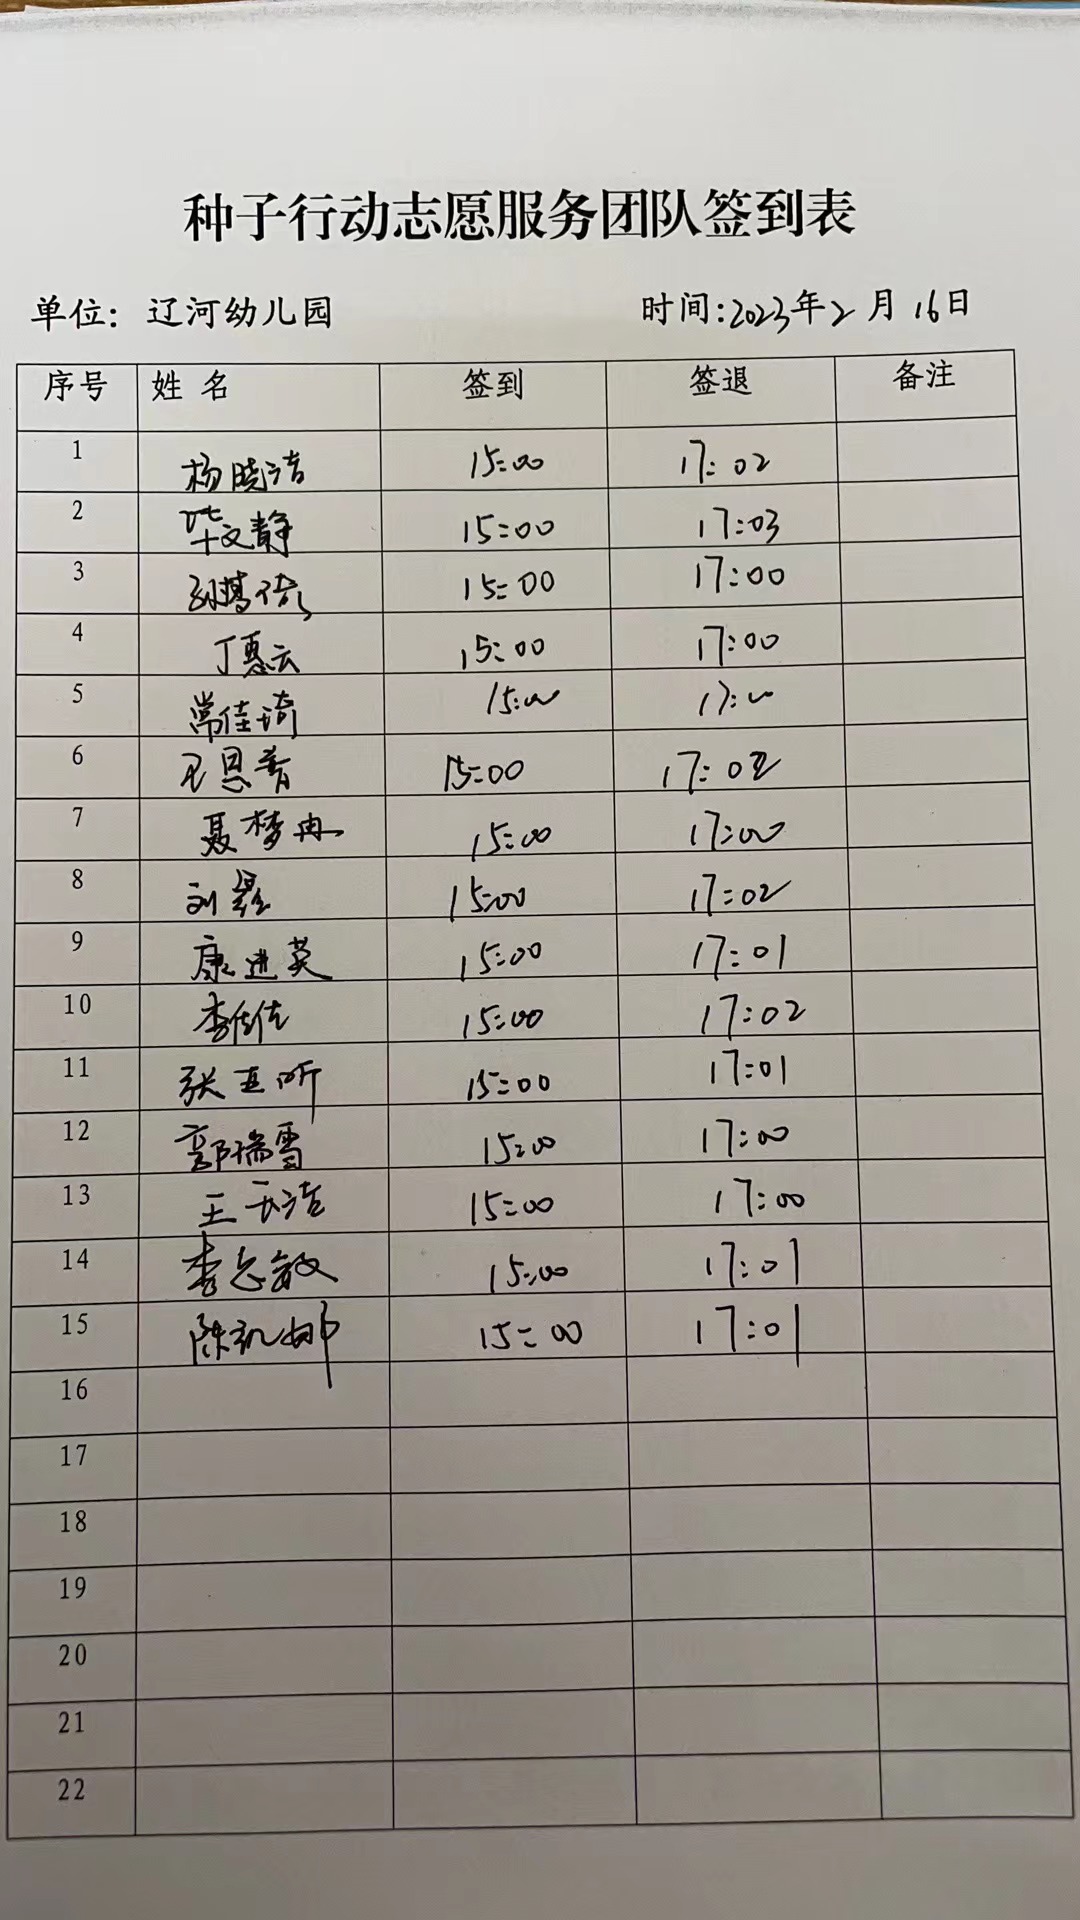 种子行动志愿服务团队签到表
单位：辽河幼儿园 时间：2023年2月16日
序号 姓名 签到 签退 备注
1 杨晓洁 15:00 17:02
2 毕文静 15:00 17:03
3 15:00 17:00
4 丁惠云 15:00 17:00
5 常佳琦 15:00 17:00
6 王恩普 15:00 17:02
7 聂梦冉 15:00 17:00
8 刘 15:00 17:02
9 康进英 15:00 17:01
10 李佳佳 15:00 17:02
11 张亚昕 15:00 17:01
12 郭瑞雪 15:00 17:00
13 王天洁 15:00 17:00
14 李志敏 15:00 17:01
15 陈凯娜 15:00 17:01
16
17
18
19
20
21
22